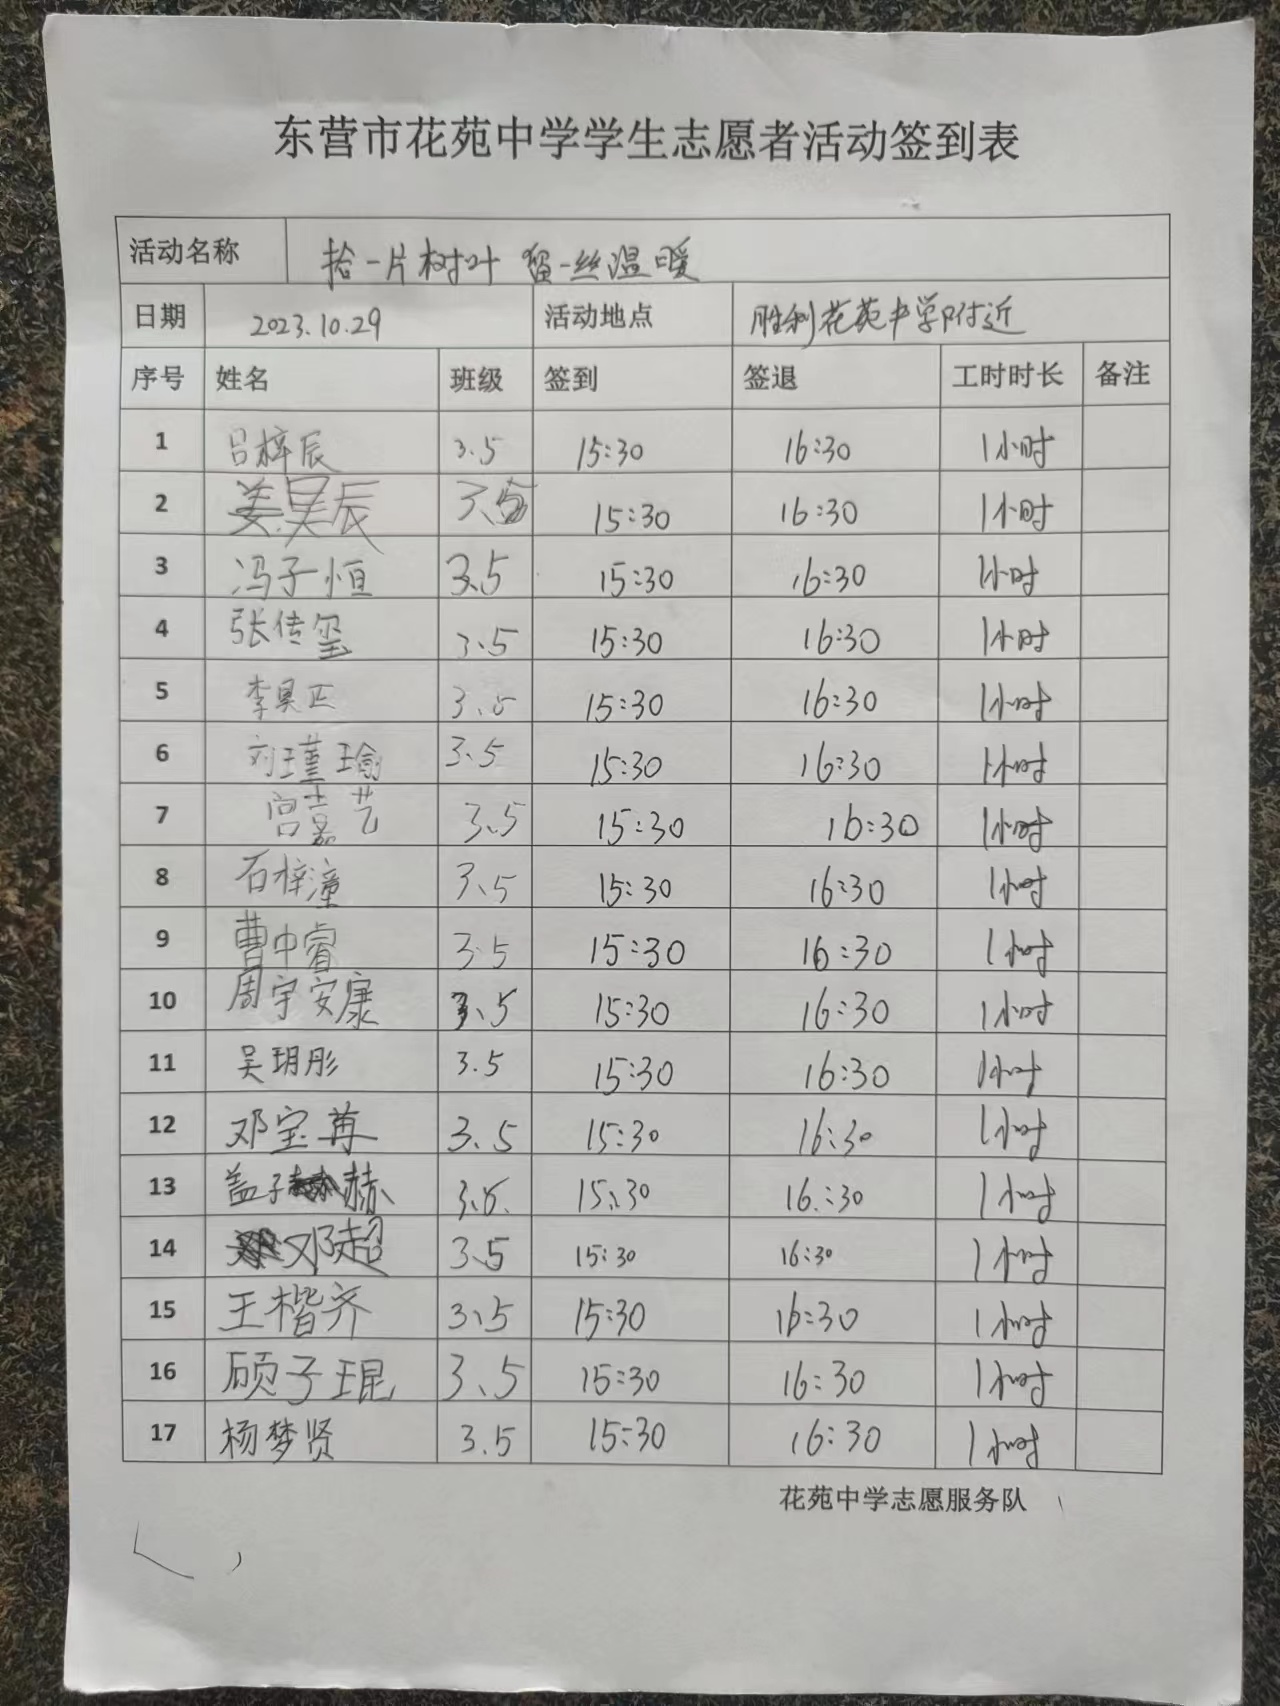 东营市花苑中学学生志愿者活动签到表
活动名称 拾一片树叶 留一丝温暖
日期 2023.10.29 活动地点 胜利花苑中学附近
序号 姓名 班级 签到 签退 工时时长 备注
1 吕梓辰 3.5 15:30 16:30 1小时
2 姜昊辰 3.5 15:30 16:30 1小时
3 冯子恒 3.5 15:30 16:30 1小时
4 张传玺 3.5 15:30 16:30 1小时
5 李昊正 3.5 15:30 16:30 1小时
6 刘瑾瑜 3.5 15:30 16:30 1小时
7 宫嘉艺 3.5 15:30 16:30 1小时
8 石梓潼 3.5 15:30 16:30 1小时
9 曹中睿 3.5 15:30 16:30 1小时
10 周宇安康 3.5 15:30 16:30 1小时
11 吴玥彤 3.5 15:30 16:30 1小时
12 邓宝苒 3.5 15:30 16:30 1小时
13 盖子赫 3.5. 15:30 16:30 1小时
14 邓超 3.5 15:30 16:30 1小时
15 王楷齐 3.5 15:30 16:30 1小时
16 顾子琨 3.5 15:30 16:30 1小时
17 杨梦贤 3.5 15:30 16:30 1小时
花苑中学志愿服务队